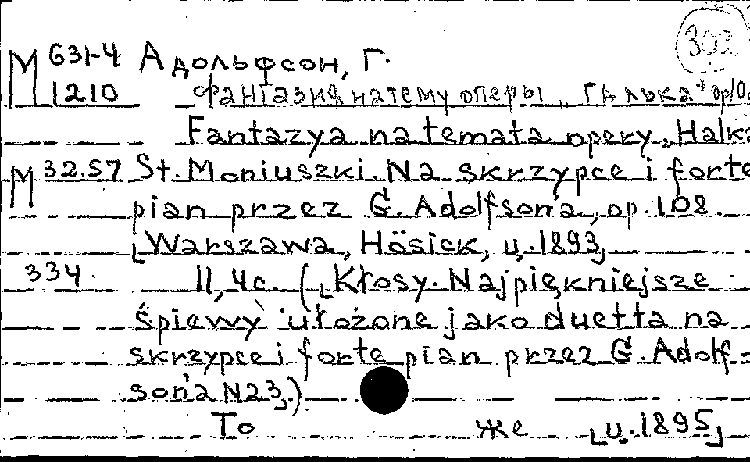 302
М 631-4 Адольфсон, Г.
1210 Фантазия на тему оперы „Галька" op.10
Fantazya na temata opery „Halka
М 32.57 St. Moniuszki. Na skrzypce i forte
pian przez G. Adolfson'a, op. 108.
[Warszawa, Hösick, ц. 1893]
334. 11, 4 с. ([Kłosy. Najpiękniejsze
śpiewy ułożone jako duetta na
skrzypce i forte pian przez G. Adolf-
son'a N23].)
То же [ц. 1895]